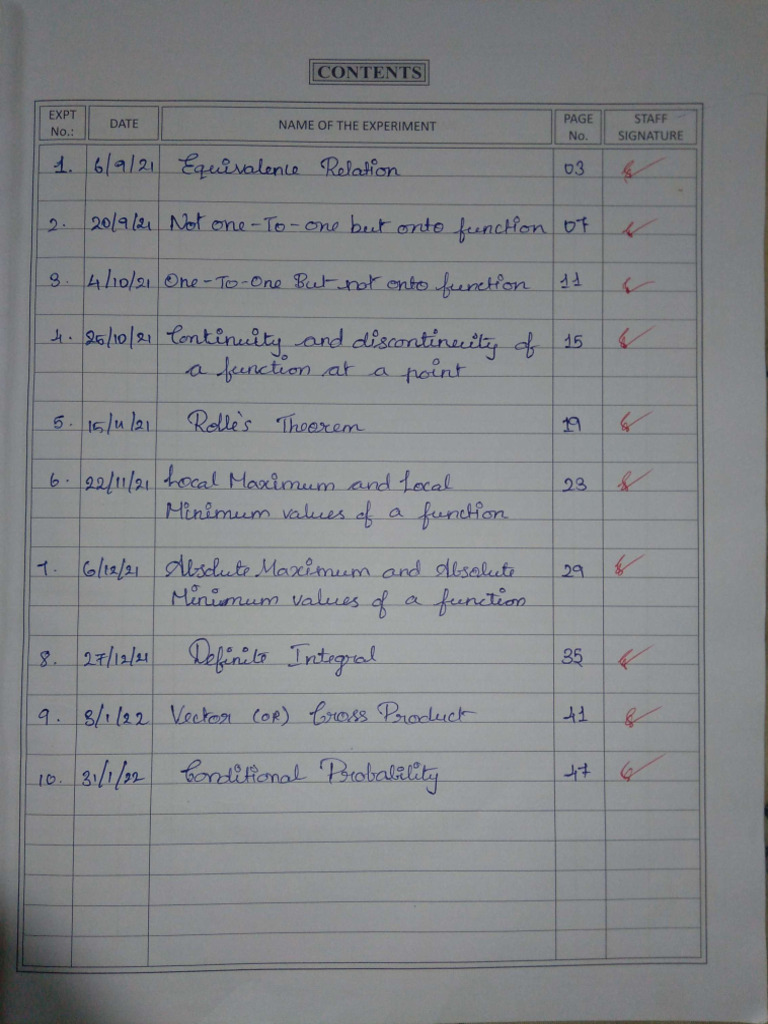 CONTENTS
EXPT No.: DATE NAME OF THE EXPERIMENT PAGE No. STAFF SIGNATURE
1. 6/9/21 Equivalence Relation 03
2. 20/9/21 Not one-To-one but onto function 07
3. 4/10/21 One-To-One But not onto function 11
4. 25/10/21 Continuity and discontinuity of 15
a function at a point
5. 15/11/21 Rolle's Theorem 19
6. 22/11/21 Local Maximum and Local 23
Minimum values of a function
7. 6/12/21 Absolute Maximum and Absolute 29
Minimum values of a function
8. 27/12/21 Definite Integral 35
9. 3/1/22 Vector (OR) Cross Product 41
10. 31/1/22 Conditional Probability 47